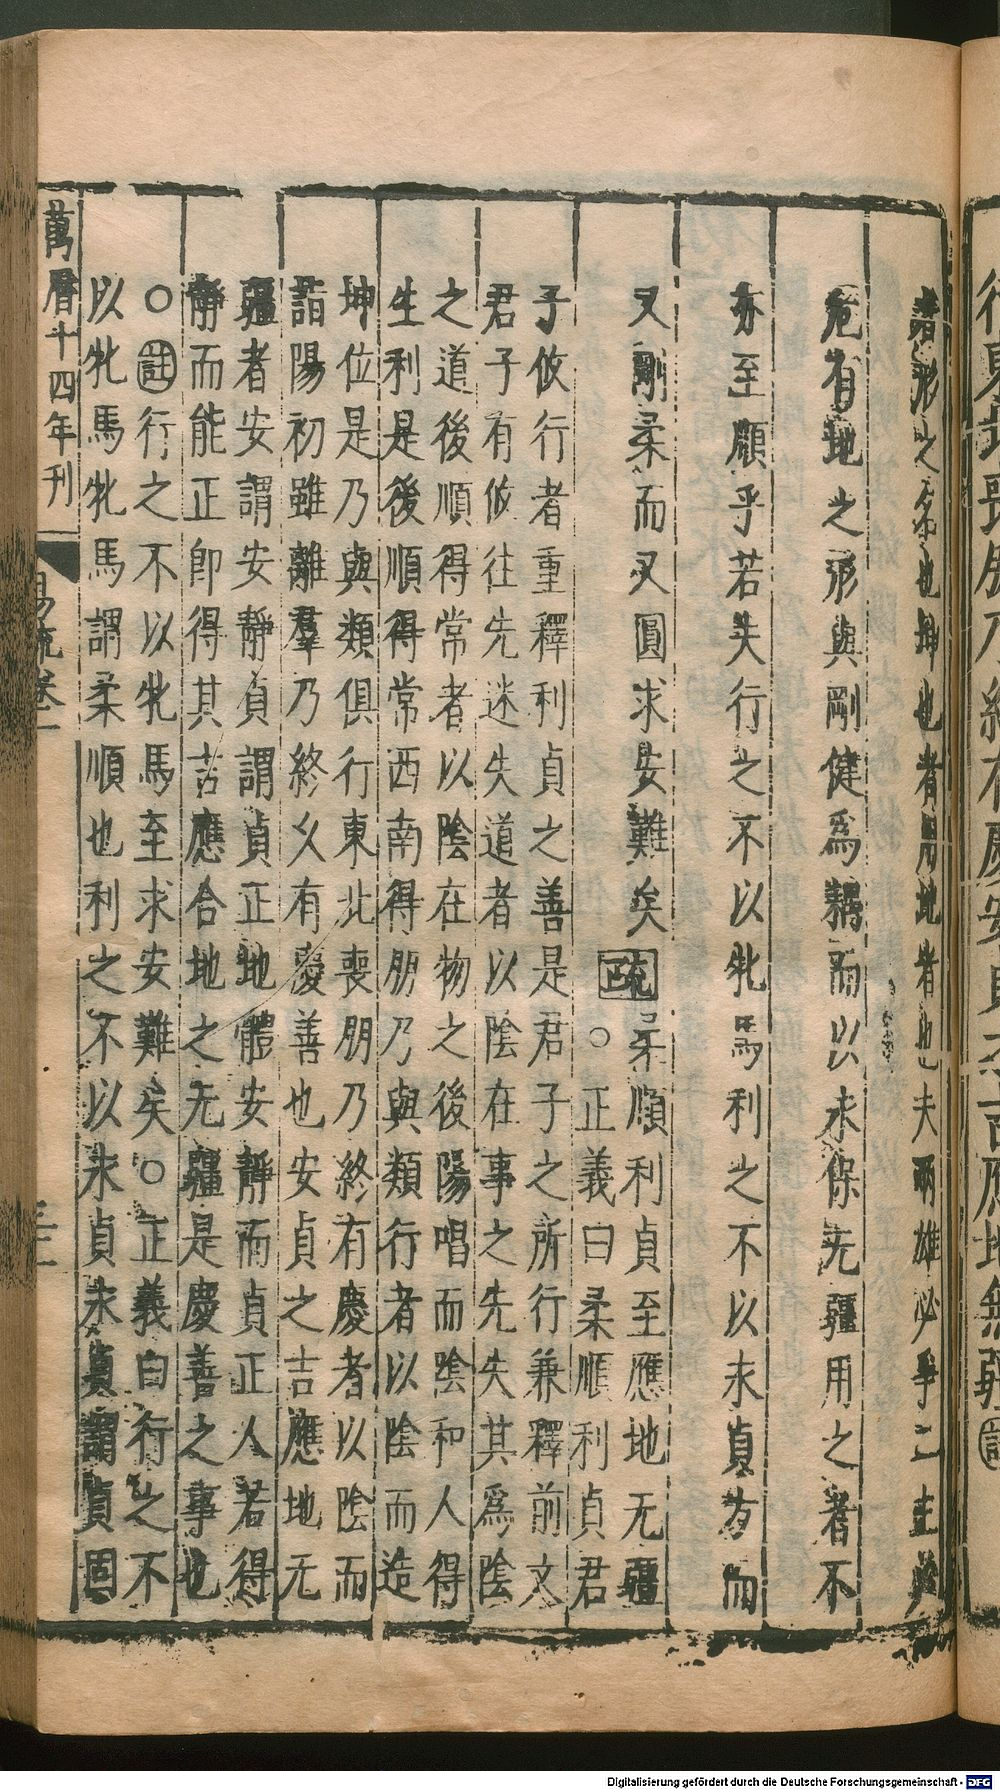 者形之名也坤也者用地者也夫兩雄必爭二主必
危有地之形與剛健爲耦而以永保无疆用之者不
亦至順乎若夫行之不以牝馬利之不以永貞方而
又剛柔而又圓求安難矣
疏
柔順利貞至應地无疆
○正義曰柔順利貞君
子攸行者重釋利貞之善是君子之所行兼釋前文
君子有攸往先迷失道者以陰在事之先失其爲陰
之道後順得常者以陰在物之後陽唱而陰和人得
生利是後順得常西南得朋乃與類行者以陰而造
坤位是乃與類俱行東北喪朋乃終有慶者以陰而
詣陽初雖離羣乃終久有慶善也安貞之吉應地无
疆者安謂安靜貞謂貞正地體安靜而貞正人若得
靜而能正即得其吉應合地之无疆是慶善之事也
○註行之不以牝馬至求安難矣○正義曰行之不
以牝馬牝馬謂柔順也利之不以永貞永貞謂貞固
萬曆十四年刊
易疏卷一
三十一
Digitalisierung gefördert durch die Deutsche Forschungsgemeinschaft - DFG